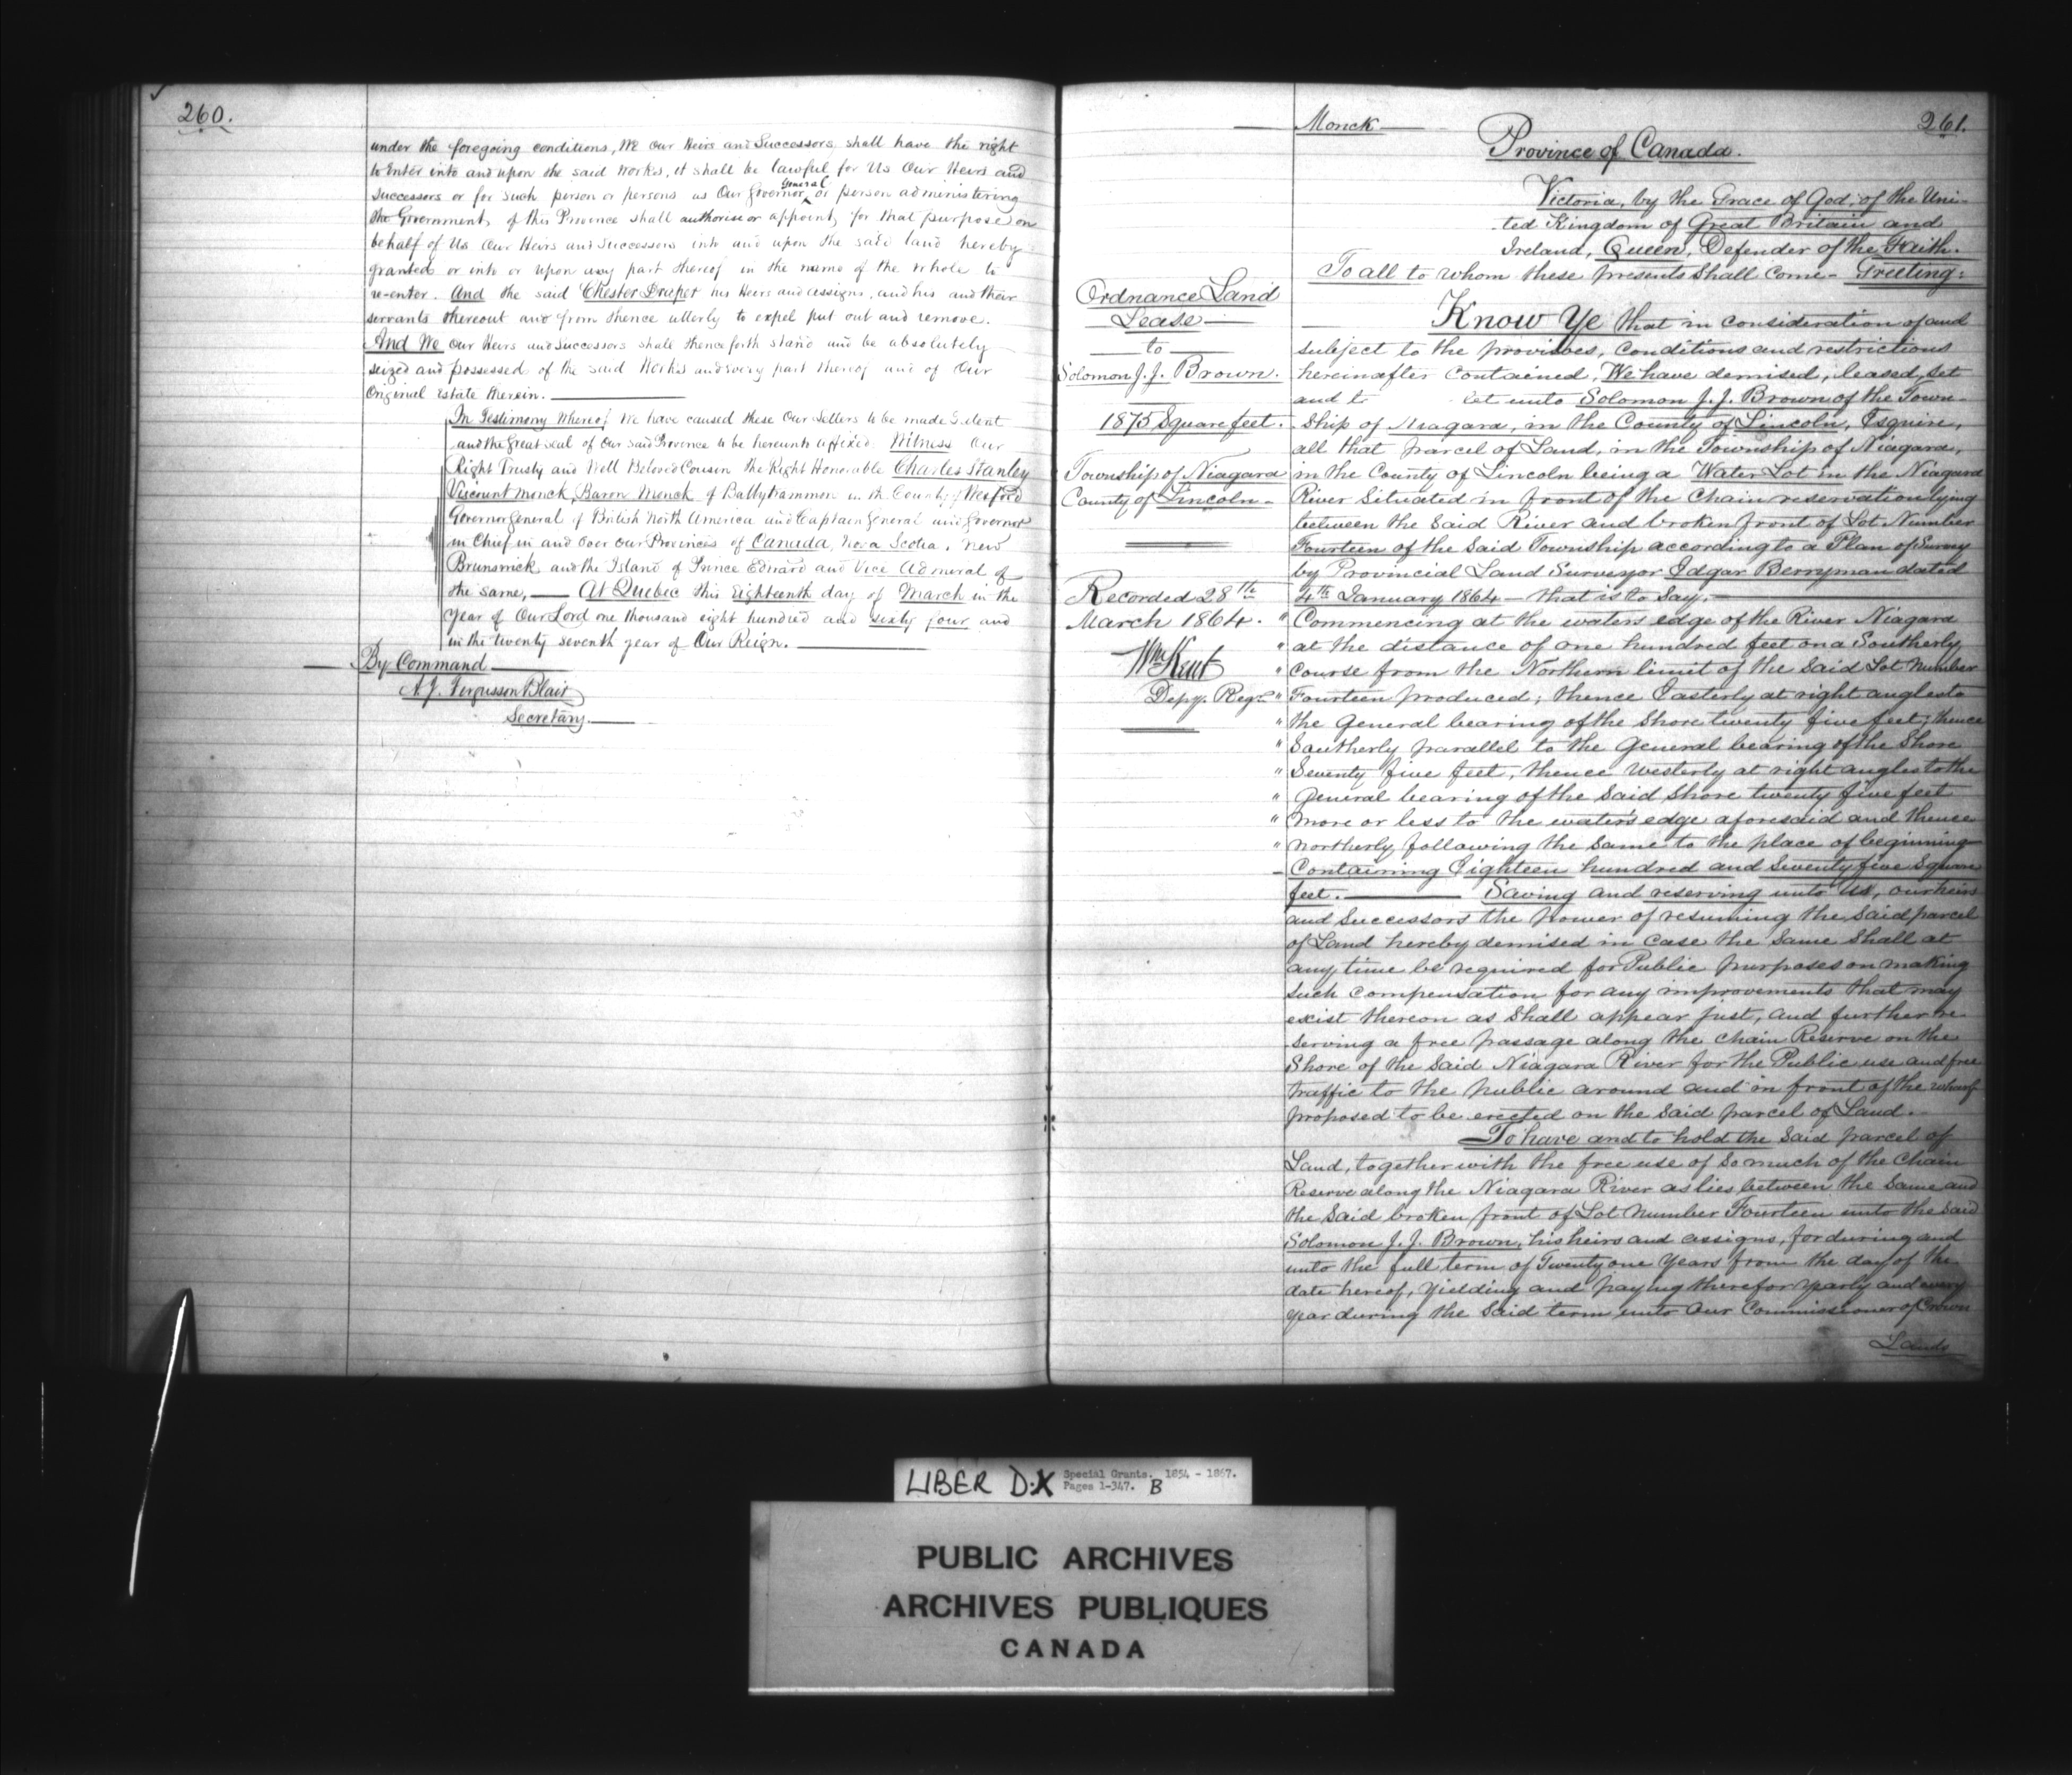 260.
under the foregoing conditions, We Our Heirs and Successors shall have the right
to Enter into and upon the said Works, it shall be lawful for Us Our Heirs and
Successors or for such person or persons as Our Governor General or person administering
the Government of this Province shall authorise or appoint for that purpose on
behalf of Us Our Heirs and Successors into and upon the said land hereby
granted or into or upon any part thereof in the name of the whole to
re-enter. And the said Chester Draper his Heirs and assigns, and his and their
servants thereout and from thence utterly to expel put out and remove.
And We Our Heirs and Successors shall thenceforth stand and be absolutely
seized and possessed of the said Works and every part thereof and of Our
Original Estate therein.
In Testimony Whereof We have caused these Our Letters to be made Patent
and the Great Seal of Our said Province to be hereunto affixed. Witness Our
Right Trusty and Well Beloved Cousin the Right Honorable Charles Stanley
Viscount Monck, Baron Monck of Ballytrammon in the County of Wexford
Governor General of British North America and Captain General and Governor
in Chief in and over our Provinces of Canada, Nova Scotia, New
Brunswick and the Island of Prince Edward and Vice Admiral of
the same, At Quebec this Eighteenth day of March in the
year of Our Lord one thousand eight hundred and sixty four and
in the twenty seventh year of Our Reign.
By Command
A. J. Fergusson Blair
Secretary.
261.
Monck
Province of Canada.
Victoria, by the Grace of God, of the Uni-
ted Kingdom of Great Britain and
Ireland, Queen, Defender of the Faith.
To all to whom these presents shall come - Greeting:
Ordnance Land
Lease
to
Solomon J. J. Brown.
1875 Square feet.
Township of Niagara
County of Lincoln
Recorded 28th
March 1864.
Wm Kent
Depy. Regr.
Know Ye that in consideration of and
subject to the provisoes, conditions and restrictions
hereinafter contained, We have demised, leased, set
and t let unto Solomon J. J. Brown of the Town-
ship of Niagara, in the County of Lincoln, Esquire,
all that parcel of Land, in the Township of Niagara,
in the County of Lincoln being a Water Lot in the Niagara
River situated in front of the chain reservation lying
between the said River and broken front of Lot Number
Fourteen of the said Township according to a Plan of Survey
by Provincial Land Surveyor Edgar Berryman dated
4th January 1864 - that is to say,
" Commencing at the waters edge of the River Niagara
" at the distance of one hundred feet on a Southerly
" course from the Northern limit of the said Lot Number
" Fourteen produced; thence Easterly at right angles to
" the General bearing of the shore twenty five feet; thence
" Southerly parallel to the General bearing of the Shore
" Seventy five feet, thence westerly at right angles to the
" General bearing of the said shore twenty five feet
" more or less to the water's edge aforesaid and thence
" northerly following the same to the place of beginning
Containing Eighteen hundred and Seventy five Square
feet. Saving and reserving unto Us, our heirs
and Successors the power of resuming the said parcel
of Land hereby demised in case the same shall at
any time be required for Public purposes on making
such compensation for any improvements that may
exist thereon as shall appear just, and further re-
serving a free passage along the chain Reserve on the
Shore of the said Niagara River for the Public use and free
traffic to the public around and in front of the wharf
proposed to be erected on the said parcel of Land.
To have and to hold the said parcel of
Land, together with the free use of so much of the Chain
Reserve along the Niagara River as lies between the same and
the said broken front of Lot Number Fourteen unto the said
Solomon J. J. Brown, his heirs and assigns, for during and
unto the full term of Twenty one Years from the day of the
date hereof, yielding and paying therefor yearly and every
year during the said term unto Our Commissioner of Crown
Lands
LIBER D.X Special Grants. 1854 - 1867.
Pages 1-347. B
PUBLIC ARCHIVES
ARCHIVES PUBLIQUES
CANADA